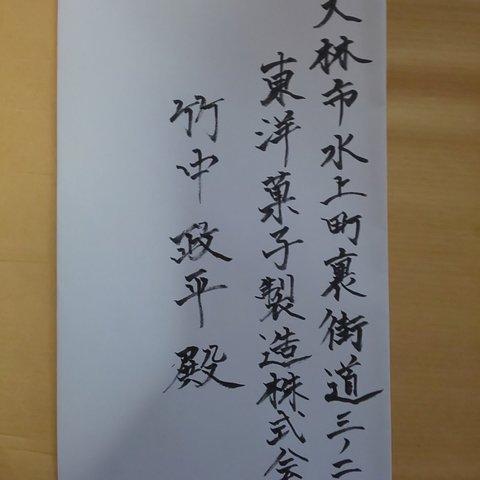 大林市水上町裏街道三ノ二
東洋菓子製造株式会
竹中政平殿